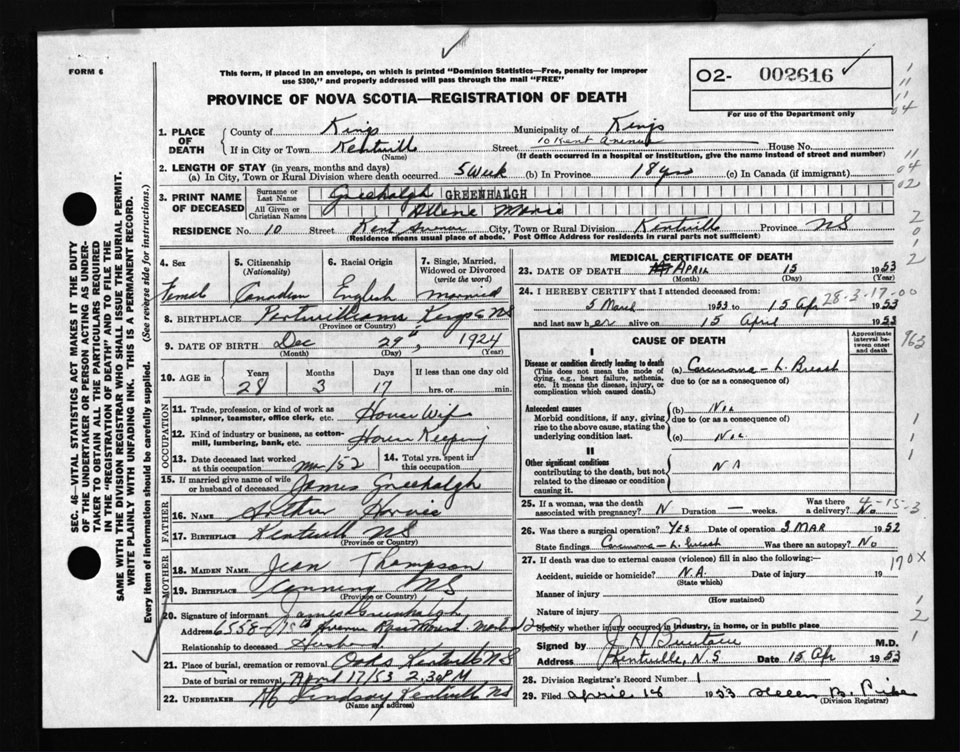 FORM 6
This form, if placed in an envelope, on which is printed "Dominion Statistics—Free, penalty for improper
use $300," and properly addressed will pass through the mail "FREE"
O2- 002616
For use of the Department only
PROVINCE OF NOVA SCOTIA—REGISTRATION OF DEATH
1. PLACE OF DEATH
County of Kings Municipality of Kings
If in City or Town Kentville Street 10 Kent Avenue House No.
(Name) (If death occurred in a hospital or institution, give the name instead of street and number)
2. LENGTH OF STAY (in years, months and days)
(a) In City, Town or Rural Division where death occurred 5 Week (b) In Province 18 yrs (c) In Canada (if immigrant)
3. PRINT NAME OF DECEASED
Surname or Last Name Greehalgh GREENHALGH
All Given or Christian Names Marie
RESIDENCE No. 10 Street Kent Avenue City, Town or Rural Division Kentville Province NS
(Residence means usual place of abode. Post Office Address for residents in rural parts not sufficient)
4. Sex Femal
5. Citizenship (Nationality) Canadian
6. Racial Origin English
7. Single, Married, Widowed or Divorced (write the word) Married
8. BIRTHPLACE Portwilliams Kings Co NS
(Province or Country)
9. DATE OF BIRTH Dec 29", 1924
(Month) (Day) (Year)
10. AGE in Years Months Days If less than one day old
28 3 17 hrs. or min.
OCCUPATION
11. Trade, profession, or kind of work as spinner, teamster, office clerk, etc. House Wif
12. Kind of industry or business, as cotton-mill, lumbering, bank, etc. House Keeping
13. Date deceased last worked at this occupation Mar/52
14. Total yrs. spent in this occupation
15. If married give name of wife or husband of deceased James Greehalgh
FATHER
16. NAME Arthur
17. BIRTHPLACE Kentvill NS
(Province or Country)
MOTHER
18. MAIDEN NAME Jean Thompson
19. BIRTHPLACE Canning NS
(Province or Country)
20. Signature of informant James Greenhalgh
Address 6558-15th Avenue Rosemount
Relationship to deceased Husband
21. Place of burial, cremation or removal Oaks Kentville NS
Date of burial or removal April 17/53 2.30 PM
22. UNDERTAKER Lindsay Kentville NS
(Name and address)
MEDICAL CERTIFICATE OF DEATH
23. DATE OF DEATH APRIL 15 1953
(Month) (Day) (Year)
24. I HEREBY CERTIFY that I attended deceased from:
28-3-17-00
5 March 1953 to 15 Apr 1953
and last saw her alive on 15 April 1953
CAUSE OF DEATH
Approximate interval between onset and death
I
Disease or condition directly leading to death
(This does not mean the mode of dying, e.g., heart failure, asthenia, etc. It means the disease, injury, or complication which caused death.)
(a) Carcinoma - L. Breast
due to (or as a consequence of)
Antecedent causes
Morbid conditions, if any, giving rise to the above cause, stating the underlying condition last.
(b) NIL
due to (or as a consequence of)
(c) NIL
II
Other significant conditions
contributing to the death, but not related to the disease or condition causing it.
NA
25. If a woman, was the death associated with pregnancy? N Duration — weeks. Was there a delivery? No
4-15-3
26. Was there a surgical operation? YES Date of operation 3 MAR 1952
State findings Carcinoma - L. Breast Was there an autopsy? No
27. If death was due to external causes (violence) fill in also the following:—
170X
Accident, suicide or homicide? N.A. Date of injury 19
(State which)
Manner of injury
(How sustained)
Nature of injury
Specify whether injury occurred in industry, in home, or in public place
Signed by M.D.
Address Kentville, N.S Date 15 Apr 1953
28. Division Registrar's Record Number 1
29. Filed april 18 1953 Helen B.
(Division Registrar)
SEC. 46—VITAL STATISTICS ACT MAKES IT THE DUTY
OF THE UNDERTAKER OR PERSON ACTING AS UNDER-
TAKER TO OBTAIN ALL THE PARTICULARS REQUIRED
IN THE "REGISTRATION OF DEATH" AND TO FILE THE
SAME WITH THE DIVISION REGISTRAR WHO SHALL ISSUE THE BURIAL PERMIT.
WRITE PLAINLY WITH UNFADING INK. THIS IS A PERMANENT RECORD.
Every item of information should be carefully supplied. (See reverse side for instructions.)